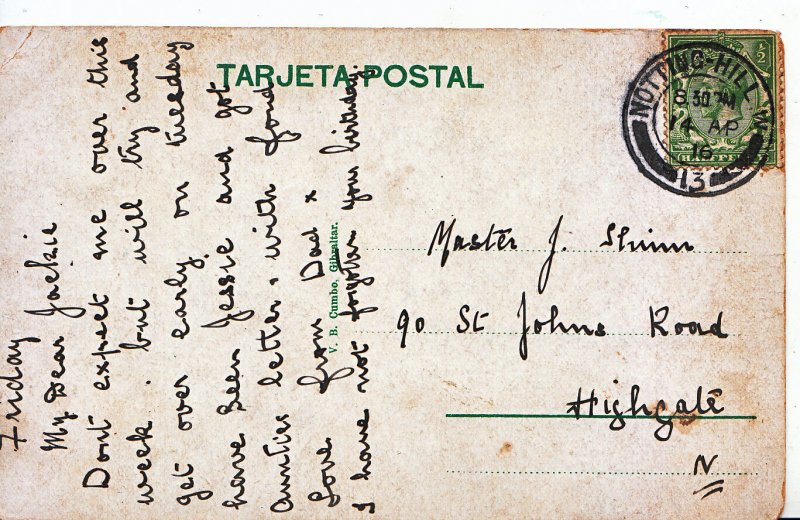 TARJETA POSTAL
NOTTING-HILL
8.30 PM
14 AP
16
13
½
HALFPENNY
Friday
My Dear Jackie
Dont expect me over this
week. but will try and
get over early on tuesday
have seen Jessie and got
Aunties letter. with fond
Love from Dad x
I have not forgotten your birthday.
V. B. Cumbo, Gibraltar.
Master J. Shinn
90 St Johns Road
Highgate
N